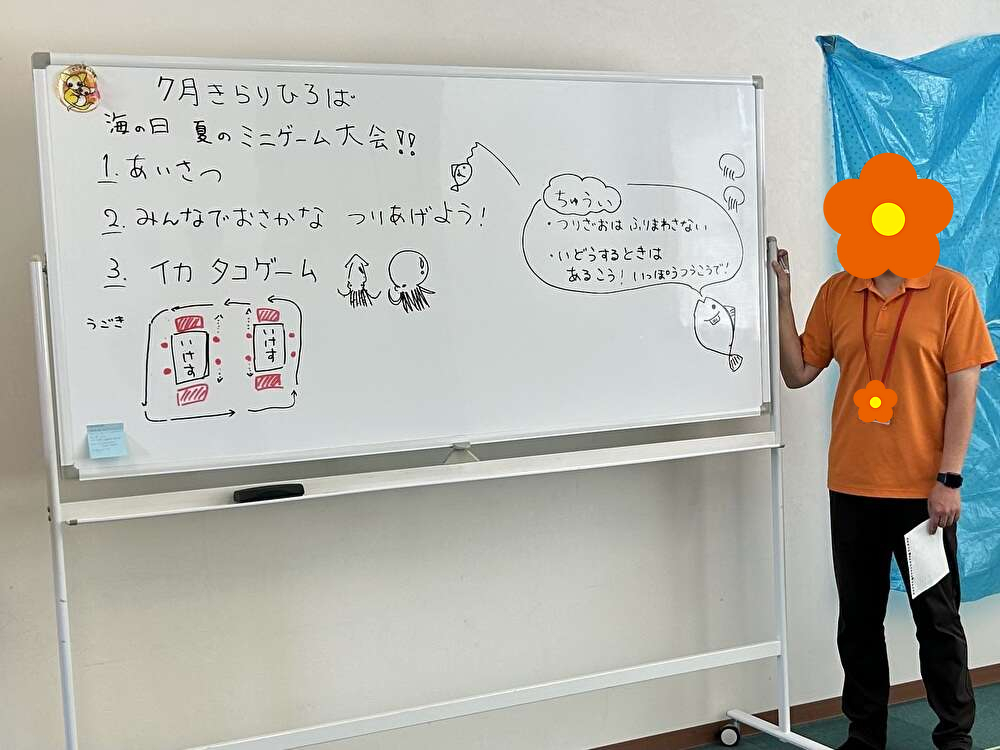 7月きらりひろば
海の日 夏のミニゲーム大会!!
1. あいさつ
2. みんなでおさかな つりあげよう!
3. イカ タコゲーム
うごき
いけす
いけす
ちゅうい
・つりざおは ふりまわさない
・いどうするときは
あるこう! いっぽうつうこうで!